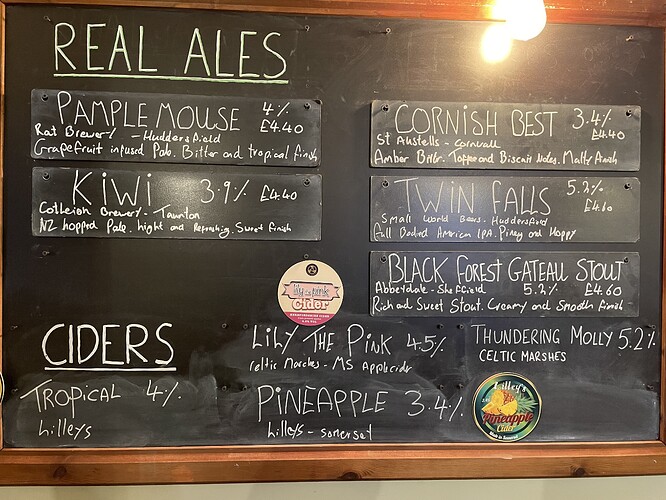 REAL ALES
PAMPLEMOUSE 4% £4.40
Rat Brewery - Huddersfield
Grapefruit infused Pale. Bitter and tropical finish
KiWi 3.9% £4.40
Cotleigh Brewery - Taunton
NZ hopped Pale. Light and Refreshing. Sweet finish
CORNISH BEST 3.4% £4.40
St Austells - Cornwall
Amber Bitter. Toffee and Biscuit Notes. Malty finish
TWIN FALLS 5.2% £4.60
Small World Beers. Huddersfield
Full Bodied American IPA. Piney and Hoppy
BLACK FOREST GATEAU STOUT
Abbeydale - Sheffield 5.2% £4.60
Rich and Sweet Stout. Creamy and Smooth finish
CIDERS
TROPICAL 4%
Lilleys
Cider
LiLY THE PiNK 4.5%
Celtic Marches - MS Applecider
PiNEAPPLE 3.4%
Lilleys - Somerset
THUNDERING MOLLY 5.2%
CELTIC MARSHES
Lilley's
Pineapple
Cider